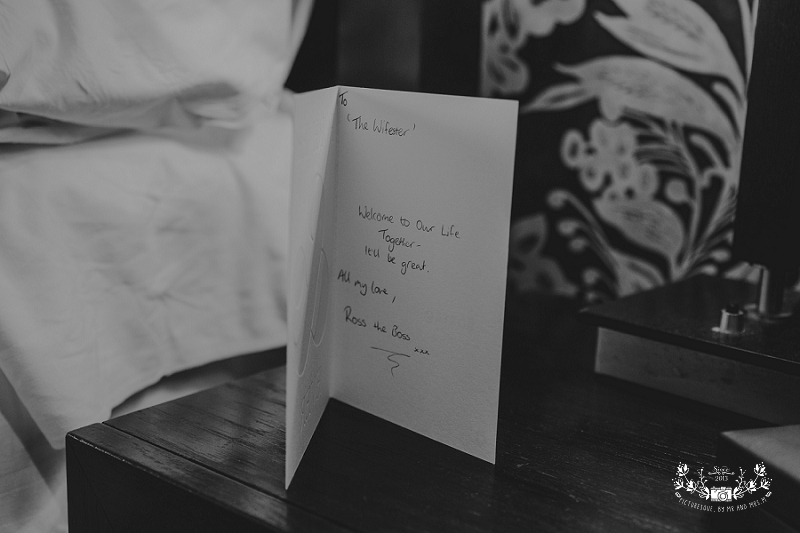 To
'The Wifester'
Welcome to Our Life
Together-
It'll be great.
All my love,
Ross the Boss
xxx
Since
2013
PICTURESQUE. BY MR AND MRS. M